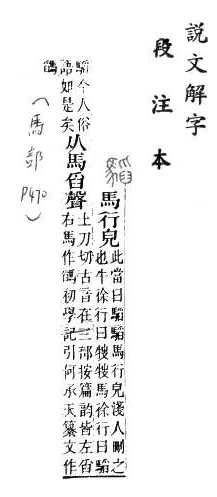 說文解字
段注本
馬行皃
此當曰𩥅𩥅馬行皃淺人刪之
也牛徐行曰㹗㹗馬徐行曰𩥅
𩥅今人俗
語如是矣
从馬舀聲
土刀切古音在三部按篇韵皆左舀
右馬作初學記引何承天纂文作
(馬部 P470)